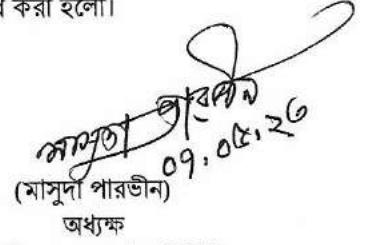 করা হলো।
মাসুদা পারভীন
০৭.০৫.২৩
(মাসুদা পারভীন)
অধ্যক্ষ